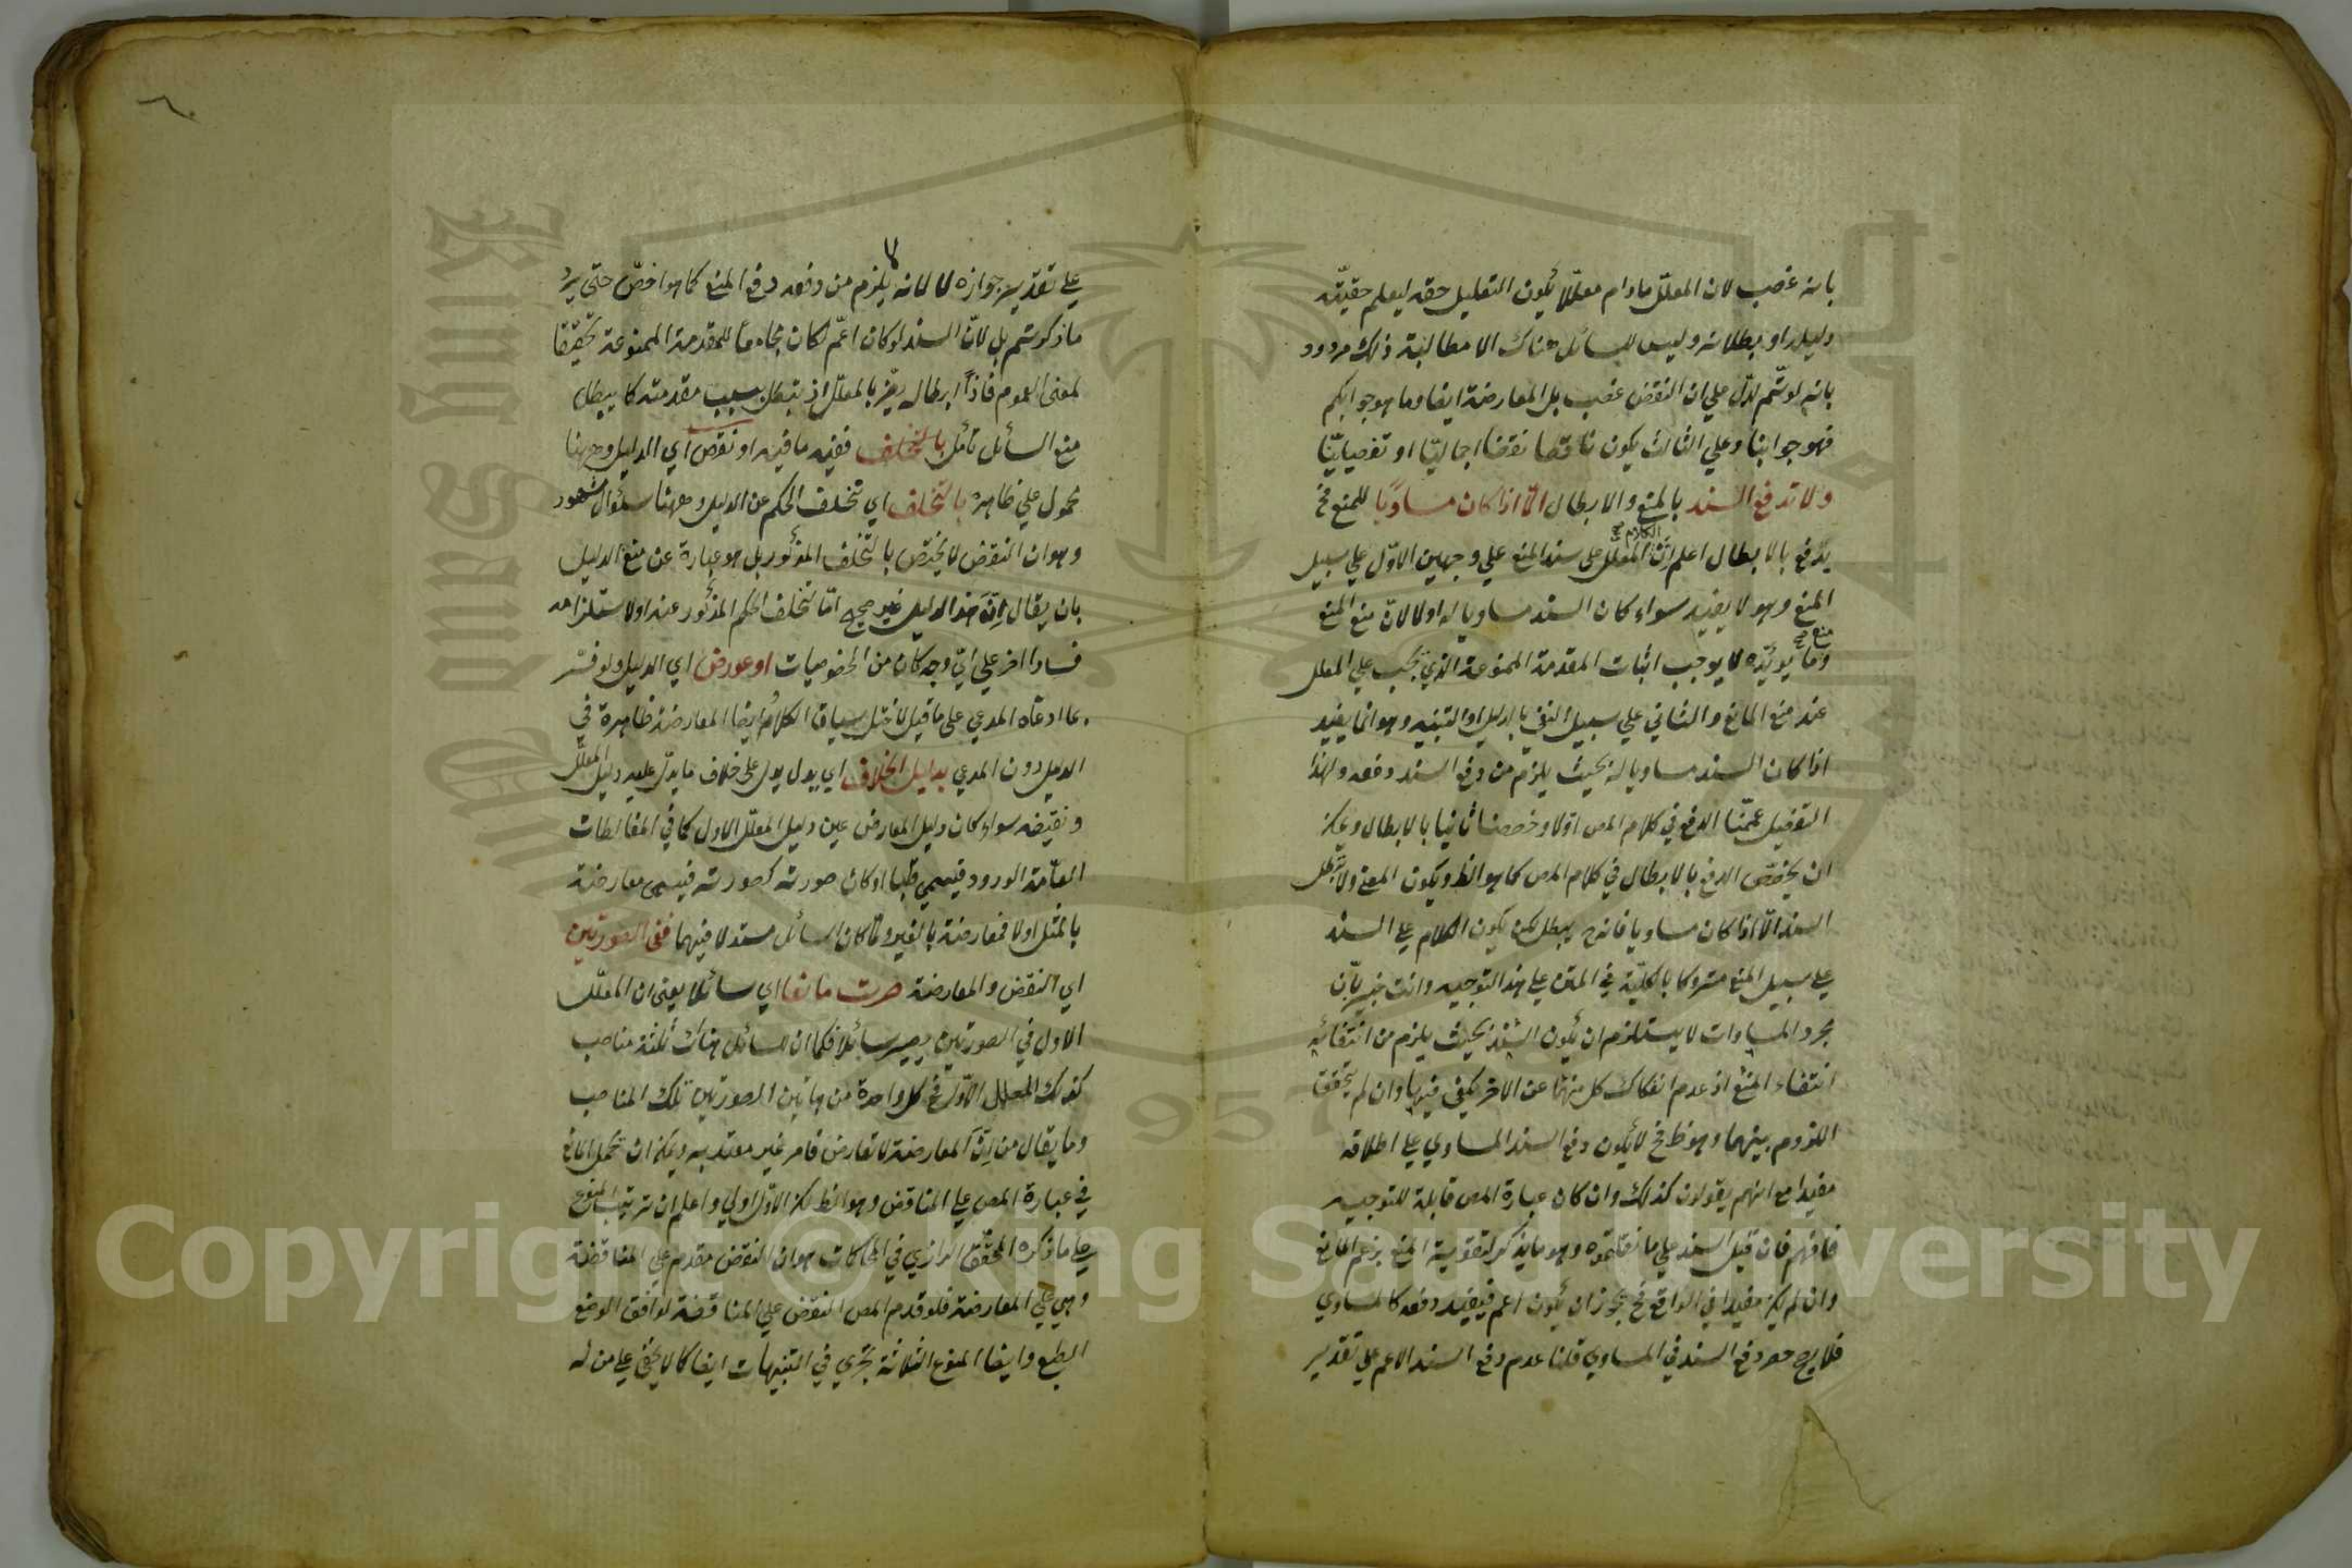 بانه غصب لان المعلل مادام معللا يكون التعليل حقه ليعلم حقيّة
دليله او بطلانه وليس للسائل هناك الا مطالبة ذلك مردود
بانه لو تم لدل علي ان النقض غصب بل المعارضة ايضا وما هو جوابكم
فهو جوابنا وعلي الثالث يكون ناقضا نقضا اجماليّا او تفصيليّا
ولا تدفع السند بالمنع والابطال الّا اذا كان مساويًا للمنع فح
يدفع بالابطال اعلم انّ الكلام المعلل على سند المنع علي وجهين الاوّل علي سبيل
المنع وهو لا يفيد سواء كان السند مساويا له اولا لان منع المنع
ومنع ما يويّده لا يوجب اثبات المقدمة الممنوعة الذي يجب علي المعلل
عند منع المانع والثاني علي سبيل النفي بالدليل او التنبيه وهو انما يفيد
اذا كان السند مساويا له بحيث يلزم من دفع السند دفعه ولهذا
التفصيل عممّنا الدفع في كلام المص اوّلا وخصصنا ثانيا بالابطال ويمكن
ان يختصّ الدفع بالابطال في كلام المص كما هو الظ ويكون المعنى ولا يبطل
السند الّا اذا كان مساويا فانه ح يبطل لكن يكون الكلام علي السند
علي سبيل المنع متروكا بالكليّة في المتن علي هذا التوجيه وانت خبير بانّ
مجرد المساوات لا يستلزم ان يكون السند بحيث يلزم من انتفائه
انتفاء المنع اذ عدم انفكاك كل منهما عن الاخر يكفي فيها وان لم يتحقق
اللزوم بينهما وهو ظ فح لا يكون دفع السند المساوي علي اطلاقه
مفيدا مع انهم يقولون كذلك وان كان عبارة المص قابلة للتوجيه
فافهم فان قيل السند علي ما نقلتموه وهو ما يذكر لتقوية المنع بزعم المانع
وان لم يكن مفيدا في الواقع فح يجوز ان يكون اعم فيفيد دفعه كالمساوي
فلا يصح حصر دفع السند في المساوي قلنا عدم دفع السند الاعم علي تقدير
علي تقدير جوازه لا لانه لا يلزم من دفعه دفع المنع كما هو اخصّ حتى يرد
ما ذكرتم بل لانّ السند لو كان اعمّ لكان مجامعاً للمقدمة الممنوعة تحقيقا
لمعنى العموم فاذاً ابطاله يضر بالمعلّل اذ تبطل بسبب مقدمته كما يبطل
منع السائل تأمل بالتخلف ففيه ما فيه او نقض اي الدليل وههنا
محمول علي ظاهره بالتخلف اي تخلف الحكم عن الدليل وههنا سئوال مشهور
وهو ان النقض لا يختص بالتخلف المذكور بل هو عبارة عن منع الدليل
بان يقال انّ هذا الدليل غير صحيح امّا لتخلف الحكم المذكور عنه او لاستلزامه
فسادا اخر علي ايّ وجه كان من الخصوصيات او عورض اي الدليل ولو فسر
بما ادعاه المدعي على ما قيل لاختل سياق الكلام ايضا المعارضة ظاهرة في
الدليل دون المدعي بدليل الخلاف اي بدل يدل على خلاف ما يدلّ عليه دليل المعلّل
ونقيضه سواء كان دليل المعارض عين دليل المعلّل الاول كما في المغالطات
العامّة الورود فيسمي قلبا او كان صورته كصورته فيسمى معارضة
بالمثل اولا فمعارضة بالغير ولمّا كان السائل مستدلا فيهما ففي الصورتين
اي النقض والمعارضة صرت مانعا اي سائلا يعنى ان المعلّل
الاول في الصورتين يصير سائلا فكما ان للسائل هناك ثلثة مناصب
كذلك للمعلل الاوّل فح كل واحدة من هاتين الصورتين تلك المناصب
وما يقال من انّ المعارضة لا تعارض فامر غير معتد به ويمكن ان يحمل المانع
في عبارة المص علي المناقض وهو الظ لكن الاوّل اولي واعلم ان ترتيب المنوع
علي ما ذكره المحقّق الرازي في المحاكمات هو ان النقض مقدم علي المناقضة
وهي علي المعارضة فلو قدم المص النقض علي المناقضة لوافق الوضع
الطبع وايضا المنوع الثلاثة تجري في التنبيهات ايضا كما لا يخفى علي من له
Copyright © King Saud University
King Saud University
1957